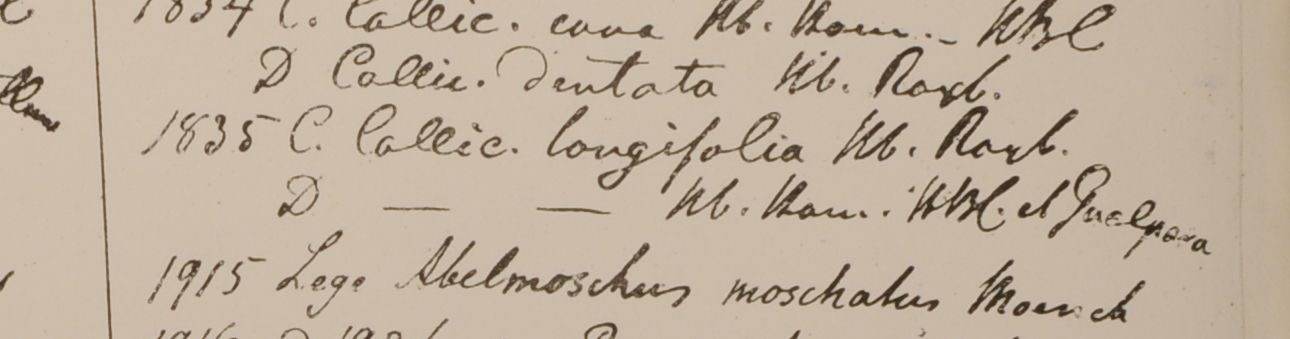 1834 C. Callic. cana Hb. Ham. – HBC
D Callic. dentata Hb. Roxb.
1835 C. Callic. longifolia Hb. Roxb.
D — — Hb. Ham. HBC. et Gualpara
1915 Lege Abelmoschus moschatus Moench